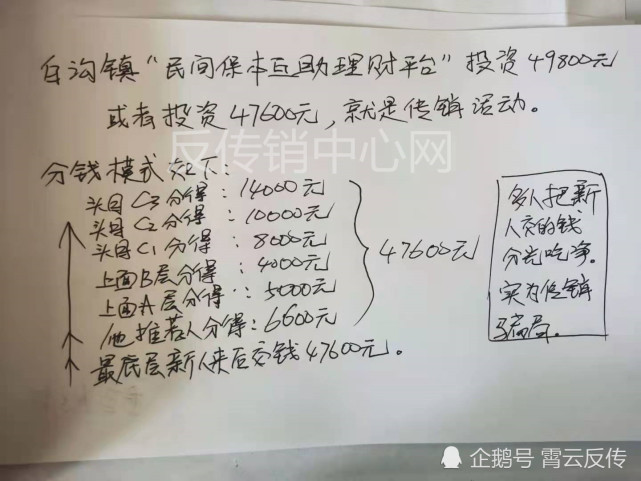 白沟镇“民间保本互助理财平台”投资49800元
或者投资47600元，就是传销活动。
反传销中心网
分钱模式如下：
头目C3分得：14000元
头目C2分得：10000元
头目C1分得：8000元
上面B层分得：4000元
上面A层分得：5000元
他推荐人分得：6600元
最底层新人来后交钱47600元。
47600元
多人把新
人交的钱
分光吃净。
实为传销
骗局。
企鹅号 霄云反传